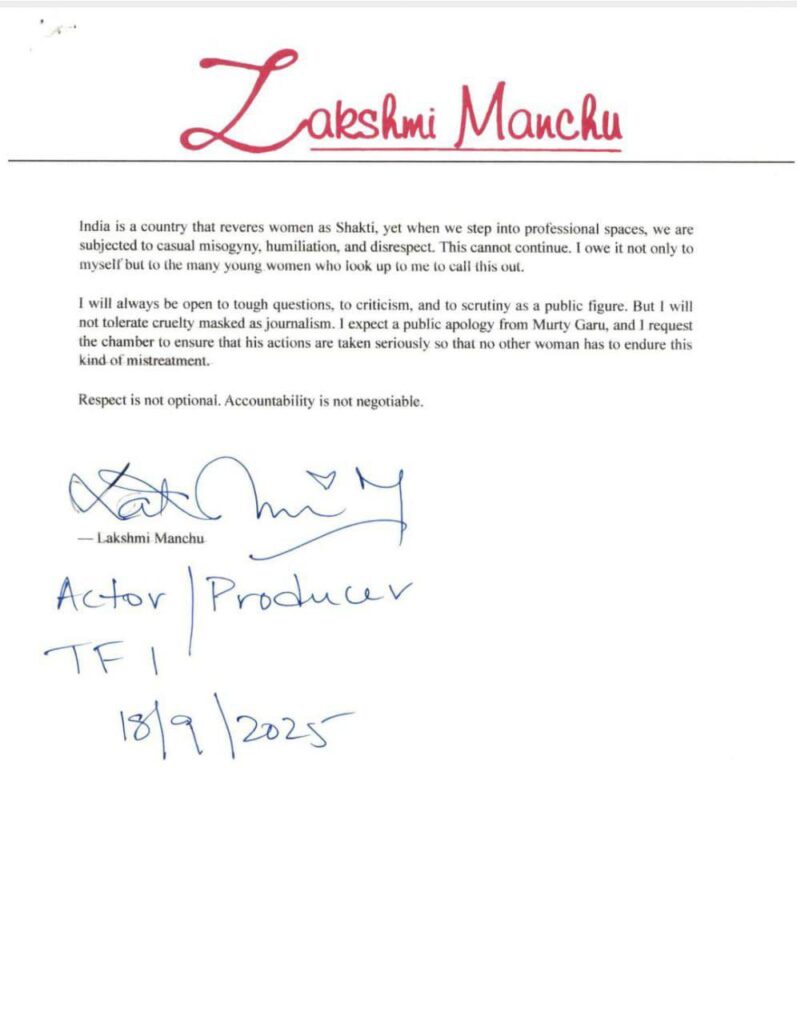 Lakshmi Manchu
India is a country that reveres women as Shakti, yet when we step into professional spaces, we are
subjected to casual misogyny, humiliation, and disrespect. This cannot continue. I owe it not only to
myself but to the many young women who look up to me to call this out.
I will always be open to tough questions, to criticism, and to scrutiny as a public figure. But I will
not tolerate cruelty masked as journalism. I expect a public apology from Murty Garu, and I request
the chamber to ensure that his actions are taken seriously so that no other woman has to endure this
kind of mistreatment.
Respect is not optional. Accountability is not negotiable.
— Lakshmi Manchu
Actor | Producer
TFI
18/9/2025